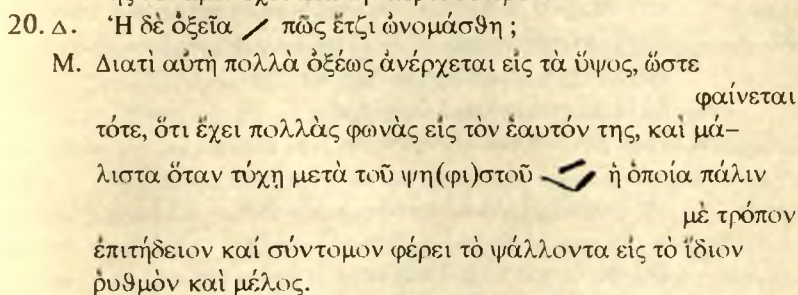 20. Δ. Ἡ δὲ ὀξεῖα πῶς ἔτζι ὠνομάσθη ;
Μ. Διατὶ αὐτὴ πολλὰ ὀξέως ἀνέρχεται εἰς τὰ ὕψος, ὥστε
φαίνεται
τότε, ὅτι ἔχει πολλὰς φωνὰς εἰς τὸν ἑαυτόν της, καὶ μά–
λιστα ὅταν τύχῃ μετὰ τοῦ ψη(φι)στοῦ ἡ ὁποία πάλιν
μὲ τρόπον
ἐπιτήδειον καί σύντομον φέρει τὸ ψάλλοντα εἰς τὸ ἴδιον
ῥυθμὸν καὶ μέλος.